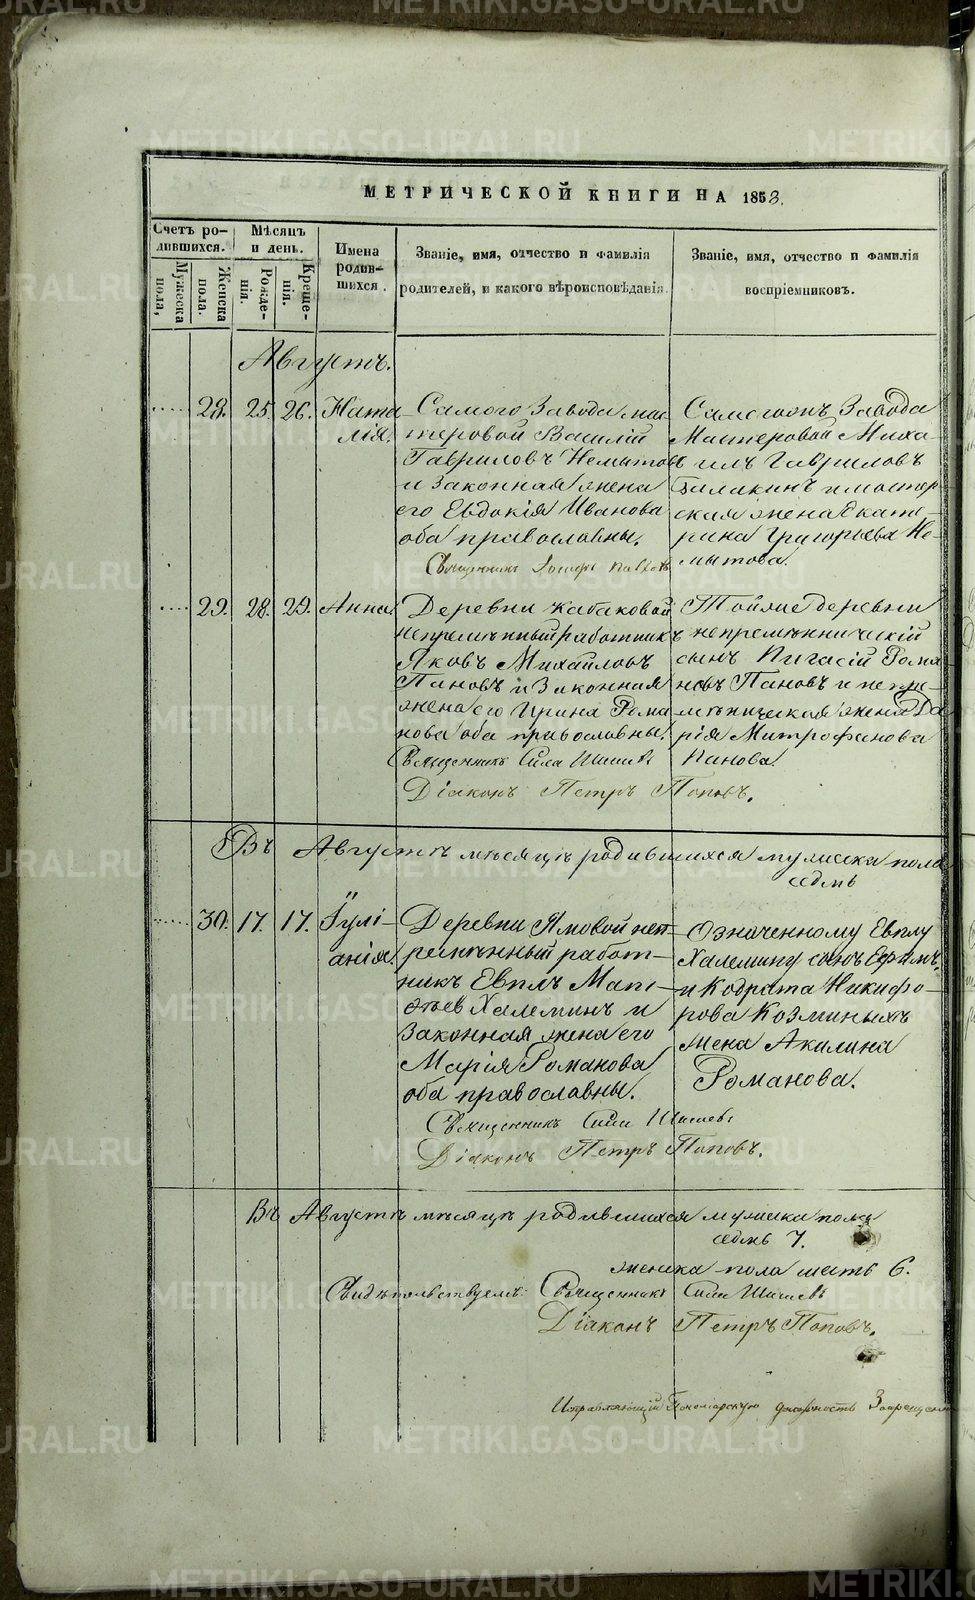 МЕТРИЧЕСКОЙ КНИГИ НА 1853.
Счетъ ро-
дившихся.
Мужеска
пола,
Женска
пола.
Мѣсяцъ
и день.
Рожде-
нія.
Креще-
нія.
Имена
родив-
шихся.
Званіе, имя, отчество и фамилія
родителей, и какого вѣроисповѣданія.
Званіе, имя, отчество и фамилія
воспріемниковъ.
Августъ.
28. 25. 26. Ната-
лія.
Самого Завода мас-
теровой Василій
Гавриловъ Немытовъ
и законная жена
его Евдокія Иванова
оба православны.
Священникъ Іосифъ
Самого Завода
Мастеровой Миха-
илъ Гавриловъ
и мастер-
ская жена Екате-
рина Григорьева Не-
мытова.
29. 28. 29. Анна
Деревни Кабаковой
непремѣнный работникъ
Яковъ Михайловъ
Пановъ и Законная
жена его Ирина Рома-
нова оба православны.
Священникъ Сила
Діаконъ Петръ Поповъ.
Тойже деревни
непремѣнническій
сынъ Пигасій Рома-
новъ Пановъ и непре-
мѣнническая жена Да-
рія Митрофанова
Панова.
Въ Августѣ мѣсяцѣ родившихся мужеска пола
седмь
30. 17. 17. Іулі-
анія.
Деревни Ямовой неп-
ремѣнный работ-
никъ Евплъ Мат-
ѳѣев Халеминъ и
Законная жена его
Марія Романова
оба православны.
Священникъ Сила
Діаконъ Петръ Поповъ.
означенному Евплу
Халемину
и Кодрата Никифо-
рова Козминыхъ
жена Акилина
Романова.
Въ Августѣ мѣсяцѣ родившихся мужеска пола
седмь 7.
женска пола шесть 6.
Свидѣтельствуемъ: Священникъ Сила
Діаконъ Петръ Поповъ.
Исправляющій Пономарскую должность
METRIKI.GASO-URAL.RU